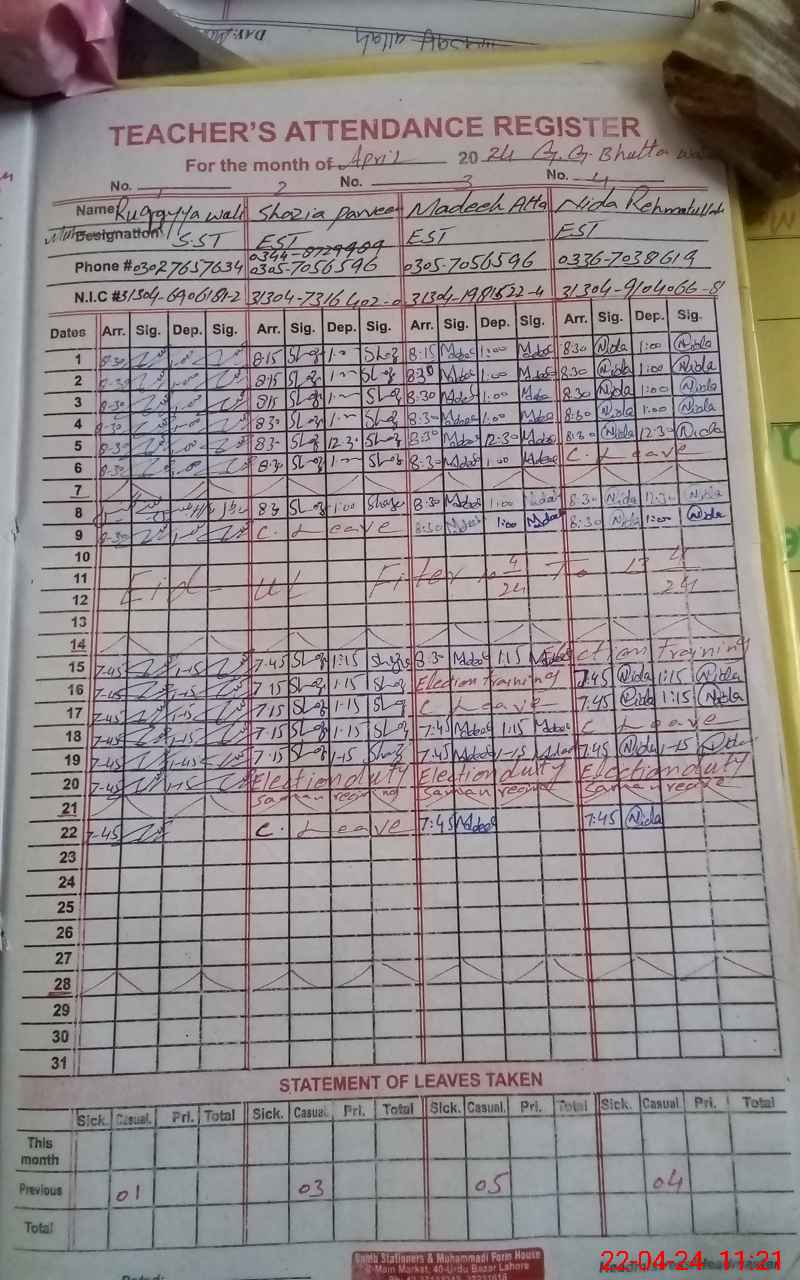 TEACHER'S ATTENDANCE REGISTER
For the month of April 2024 G.G. Bhutta
No. 1 2 No. 3 No. 4
Name Ruqqyya wali Shazia Parveen Madeeh Atta Nida Rehmatullah
Designation S.ST EST EST EST
0344-8729989
Phone # 03027657634 0305-7056596 0305-7056596 0336-7038619
N.I.C # 31304-6906181-2 31304-7316402-0 31304-1981522-4 31304-9104066-8
Dates Arr. Sig. Dep. Sig. Arr. Sig. Dep. Sig. Arr. Sig. Dep. Sig. Arr. Sig. Dep. Sig.
1 8-30 1-00 8:15 Shaz 1:00 Shaz 8:15 Madee 1:00 Madee 8:30 Nida 1:00 Nida
2 8-30 1-00 8:15 Shaz 1:00 Shaz 8:30 Madee 1:00 Madee 8:30 Nida 1:00 Nida
3 8-30 1-00 8:15 Shaz 1:00 Shaz 8:30 Madee 1:00 Madee 8:30 Nida 1:00 Nida
4 8-30 1-00 8:30 Shaz 1:00 Shaz 8:30 Madee 1:00 Madee 8:30 Nida 1:00 Nida
5 8-30 1-00 8:30 Shaz 12:30 Shaz 8:30 Madee 12:30 Madee 8:30 Nida 12:30 Nida
6 8-30 1-00 8:30 Shaz 1:00 Shaz 8:30 Madee 1:00 Madee C. Leave
7
8 8:30 Shaz 1:00 Shaz 8:30 Madee 1:00 Madee 8:30 Nida 12:30 Nida
9 8-30 1-00 C. Leave 8:30 Madee 1:00 Madee 8:30 Nida 1:00 Nida
10
11 Eid-ul Fiter 10 4/24 To 13 4/24
12
13
14
15 7-45 1-15 7:45 Shaz 1:15 Shaz 8:30 Madee 1:15 Election training
16 7-45 1-15 7:15 Shaz 1:15 Shaz Election training 7:45 Nida 1:15 Nida
17 7-45 1-15 7:15 Shaz 1:15 Shaz C Leave 7:45 Nida 1:15 Nida
18 7-45 1-15 7:15 Shaz 1:15 Shaz 7:45 Madee 1:15 Madee C Leave
19 7-45 1-45 7:15 Shaz 1-15 Shaz 7:45 Madee 1-15 Madee 7:45 Nida 1-15 Nida
20 7-45 1-15 Election duty Election duty Election duty
saman saman saman
21
22 7-45 C. Leave 7:45 Madee 7:45 Nida
23
24
25
26
27
28
29
30
31
STATEMENT OF LEAVES TAKEN
Sick. Casual. Pri. Total Sick. Casual. Pri. Total Sick. Casual. Pri. Total Sick. Casual Pri. Total
This month
Previous 01 03 05 04
Total
Stationers & Muhammadi Form House
Main Market, 40-Urdu Bazar Lahore
22-04-24 11:21